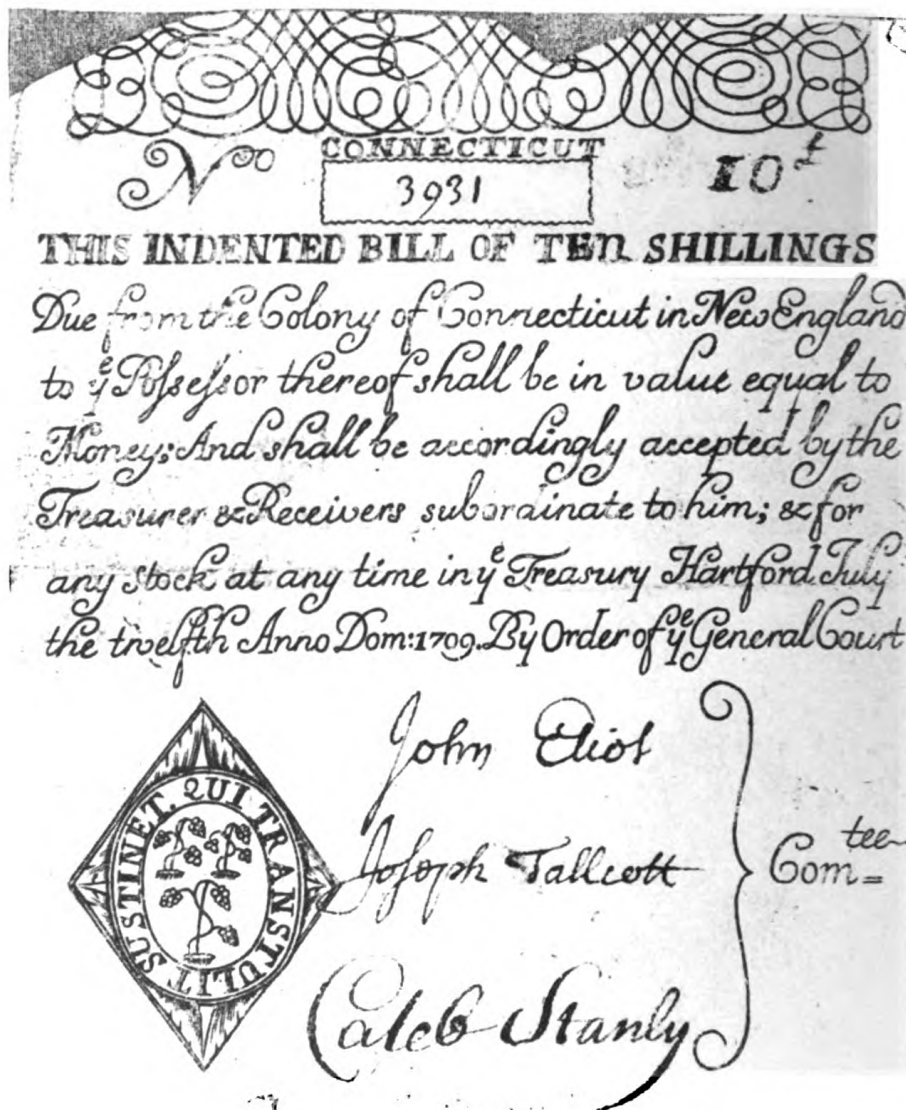 CONNECTICUT
No 3931 10s
THIS INDENTED BILL OF TEN SHILLINGS
Due from the Colony of Connecticut in New England
to yᵉ Poſseſsor thereof shall be in value equal to
Money; And shall be accordingly accepted by the
Treasurer & Receivers subordinate to him; & for
any stock at any time in yᵉ Treasury Hartford July
the twelfth Anno Dom: 1709. By Order of yᵉ General Court
John Eliot
Joseph Tallcott
Com=tee
Caleb Stanly
SUSTINET. QUI TRANSTULIT